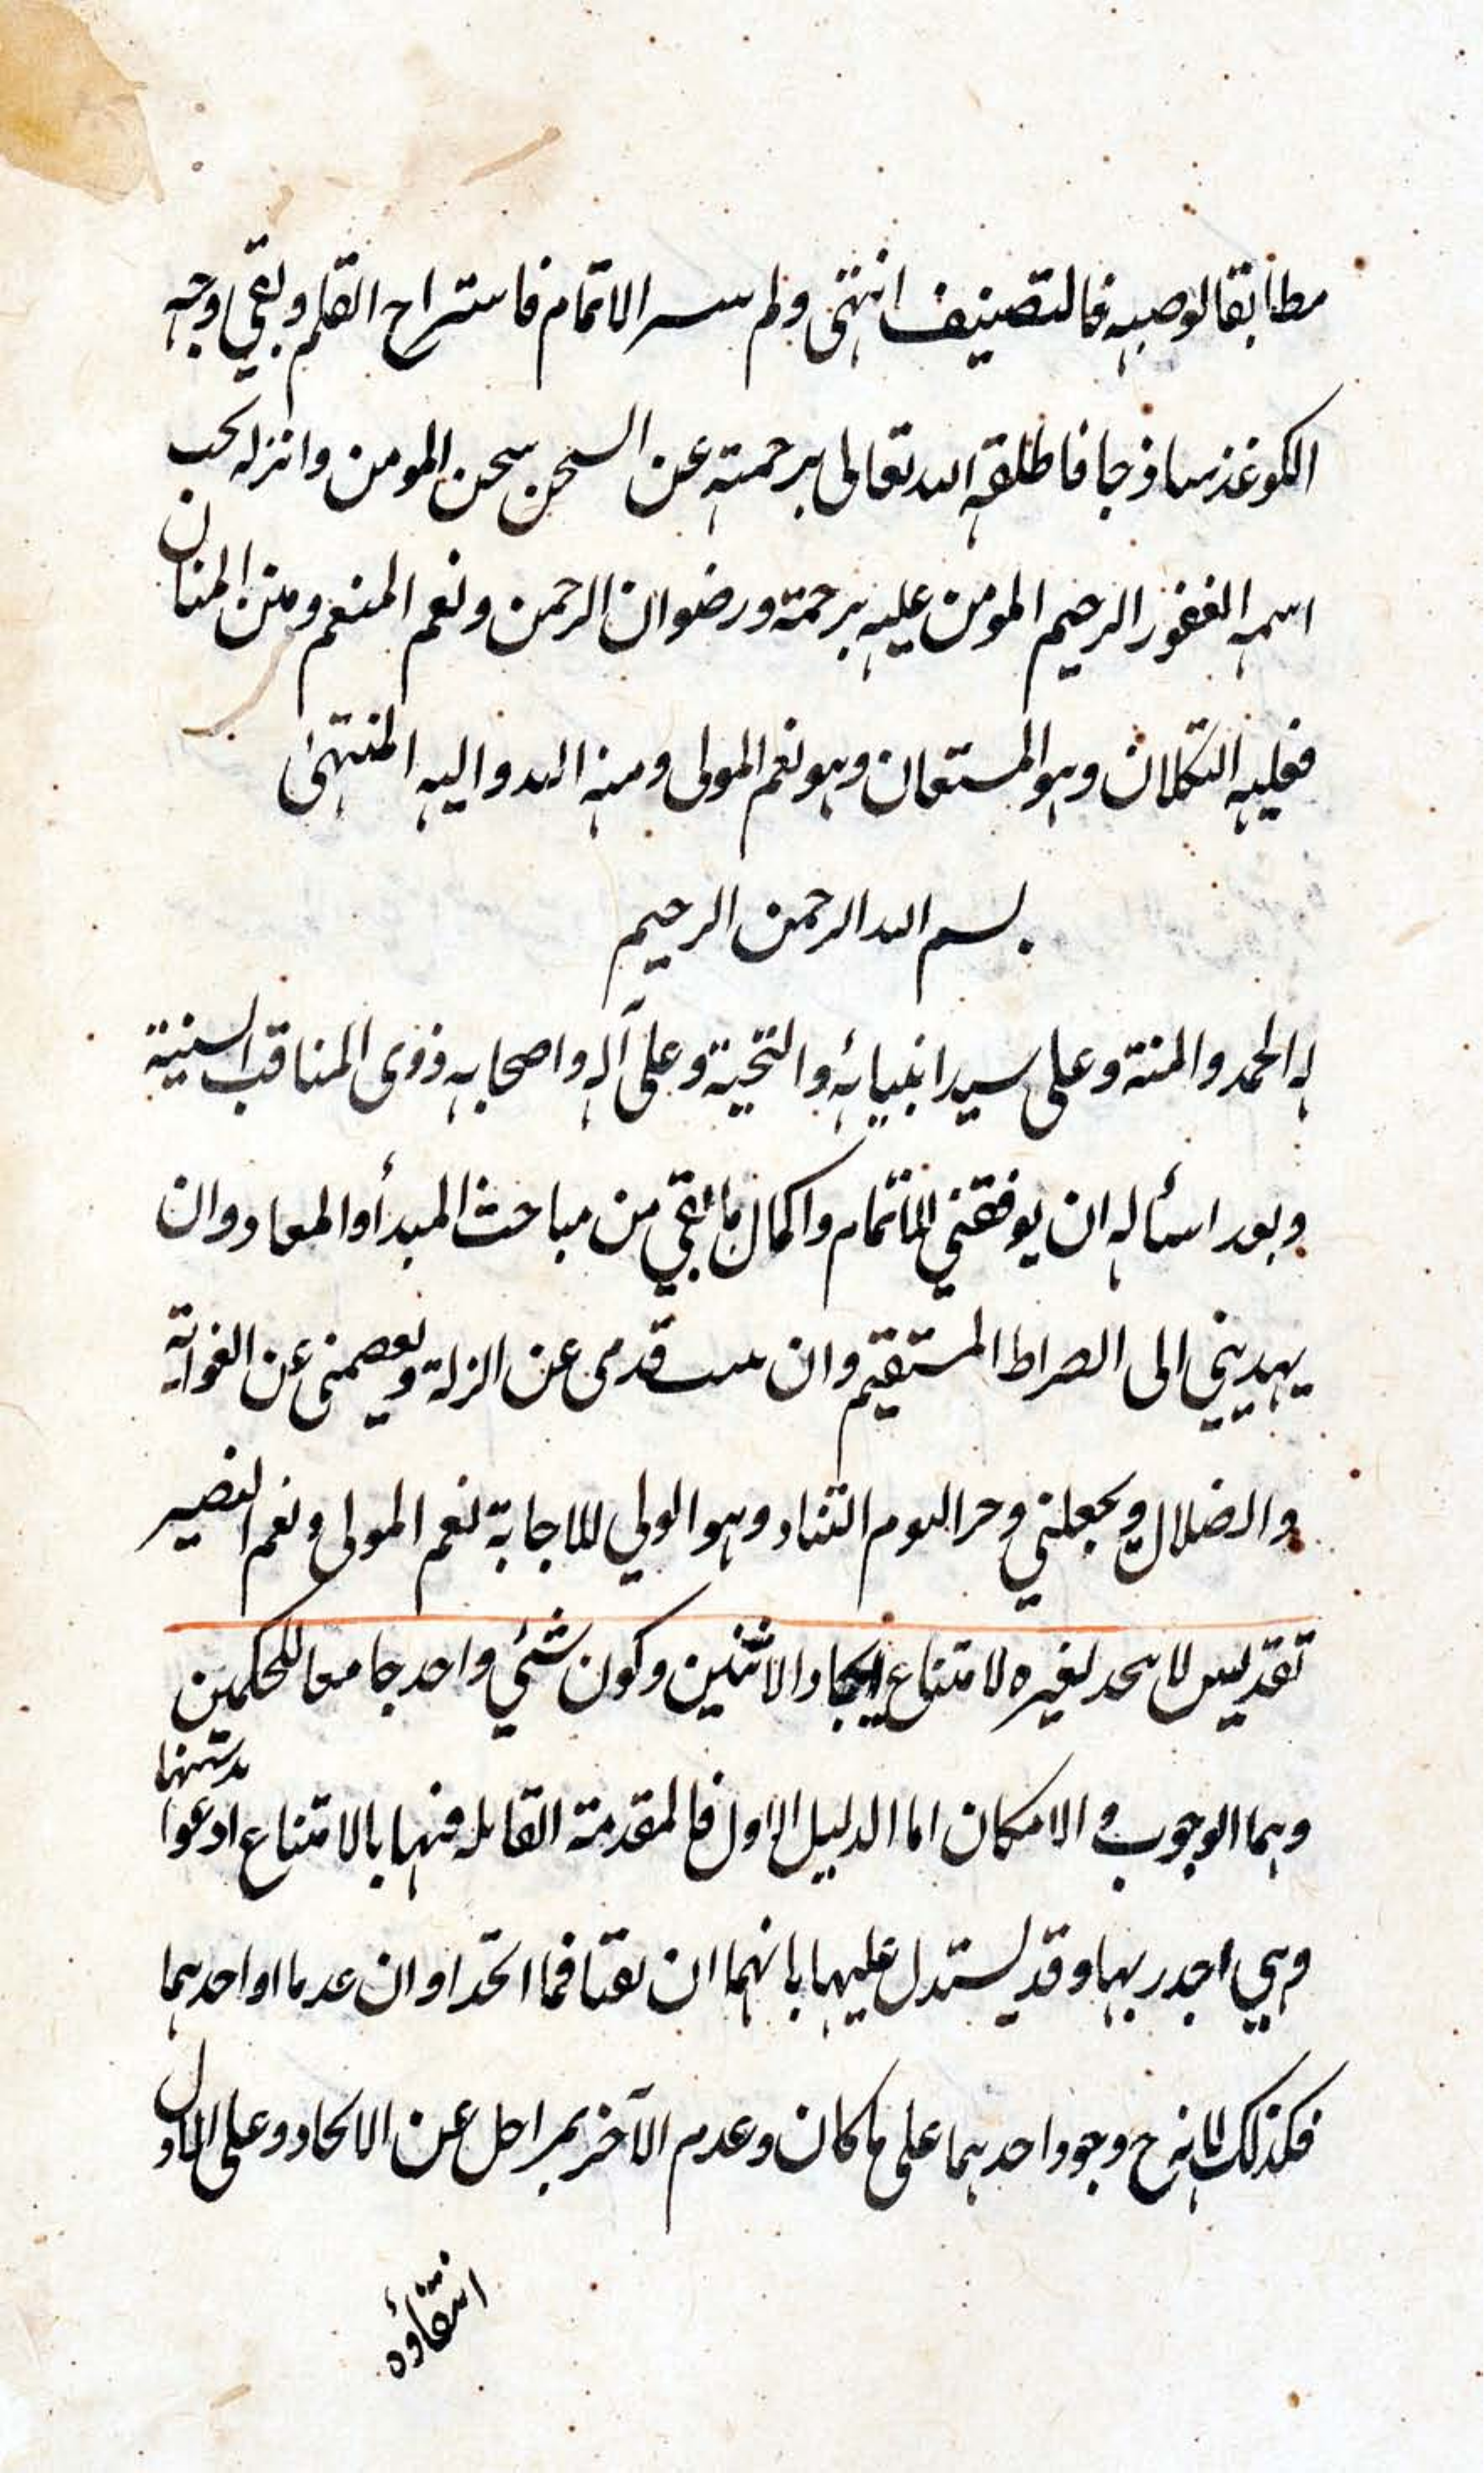 مطابقا لوصيه فالتصنيف انتهى ولم يتيسر الاتمام فاستراح القلم وبقي وجه
الكوغذ ساذجا فاطلقه الله تعالى برحمته عن السجن سجن المومن وانزله تحت
اسمه الغفور الرحيم المومن عليه برحمة ورضوان الرحمن ونعم المنعم ومنن المنان
فعليه التكلان وهو المستعان وهو نعم المولى ومنه البدء واليه المنتهى
بسم الله الرحمن الرحيم
له الحمد والمنة وعلى سيد انبيائه والتحية وعلى آله واصحابه ذوى المناقب السنية
وبعد اسأله ان يوفقني لاتمام واكمال ما بقي من مباحث المبدأ والمعاد وان
يهديني الى الصراط المستقيم وان يثبت قدمى عن الزلة ويعصمنى عن الغواية
والضلال ويجعلني ذخرا ليوم التناد وهو الولي للاجابة نعم المولى ونعم النصير
تقديس لا يتحد لغيره لامتناع ايجاد الاثنين وكون شئي واحد جامعا للحكمين
وهما الوجوب والامكان اما الدليل الاول فالمقدمة القايله فيها بالامتناع ادعوا بديهتها
وهي اجدر بها وقد يستدل عليها بانهما ان بقيا فما اتحدا وان عدما او احدهما
فكذلك لانه ح وجود احدهما على ما كان وعدم الآخر بمراحل عن الاتحاد وعلى الاول
انتفاؤه